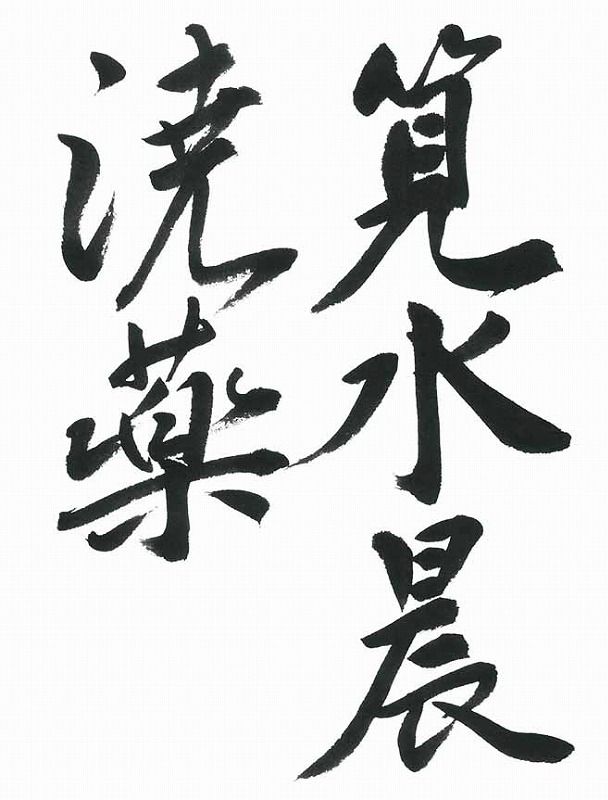 筧水晨
澆薬